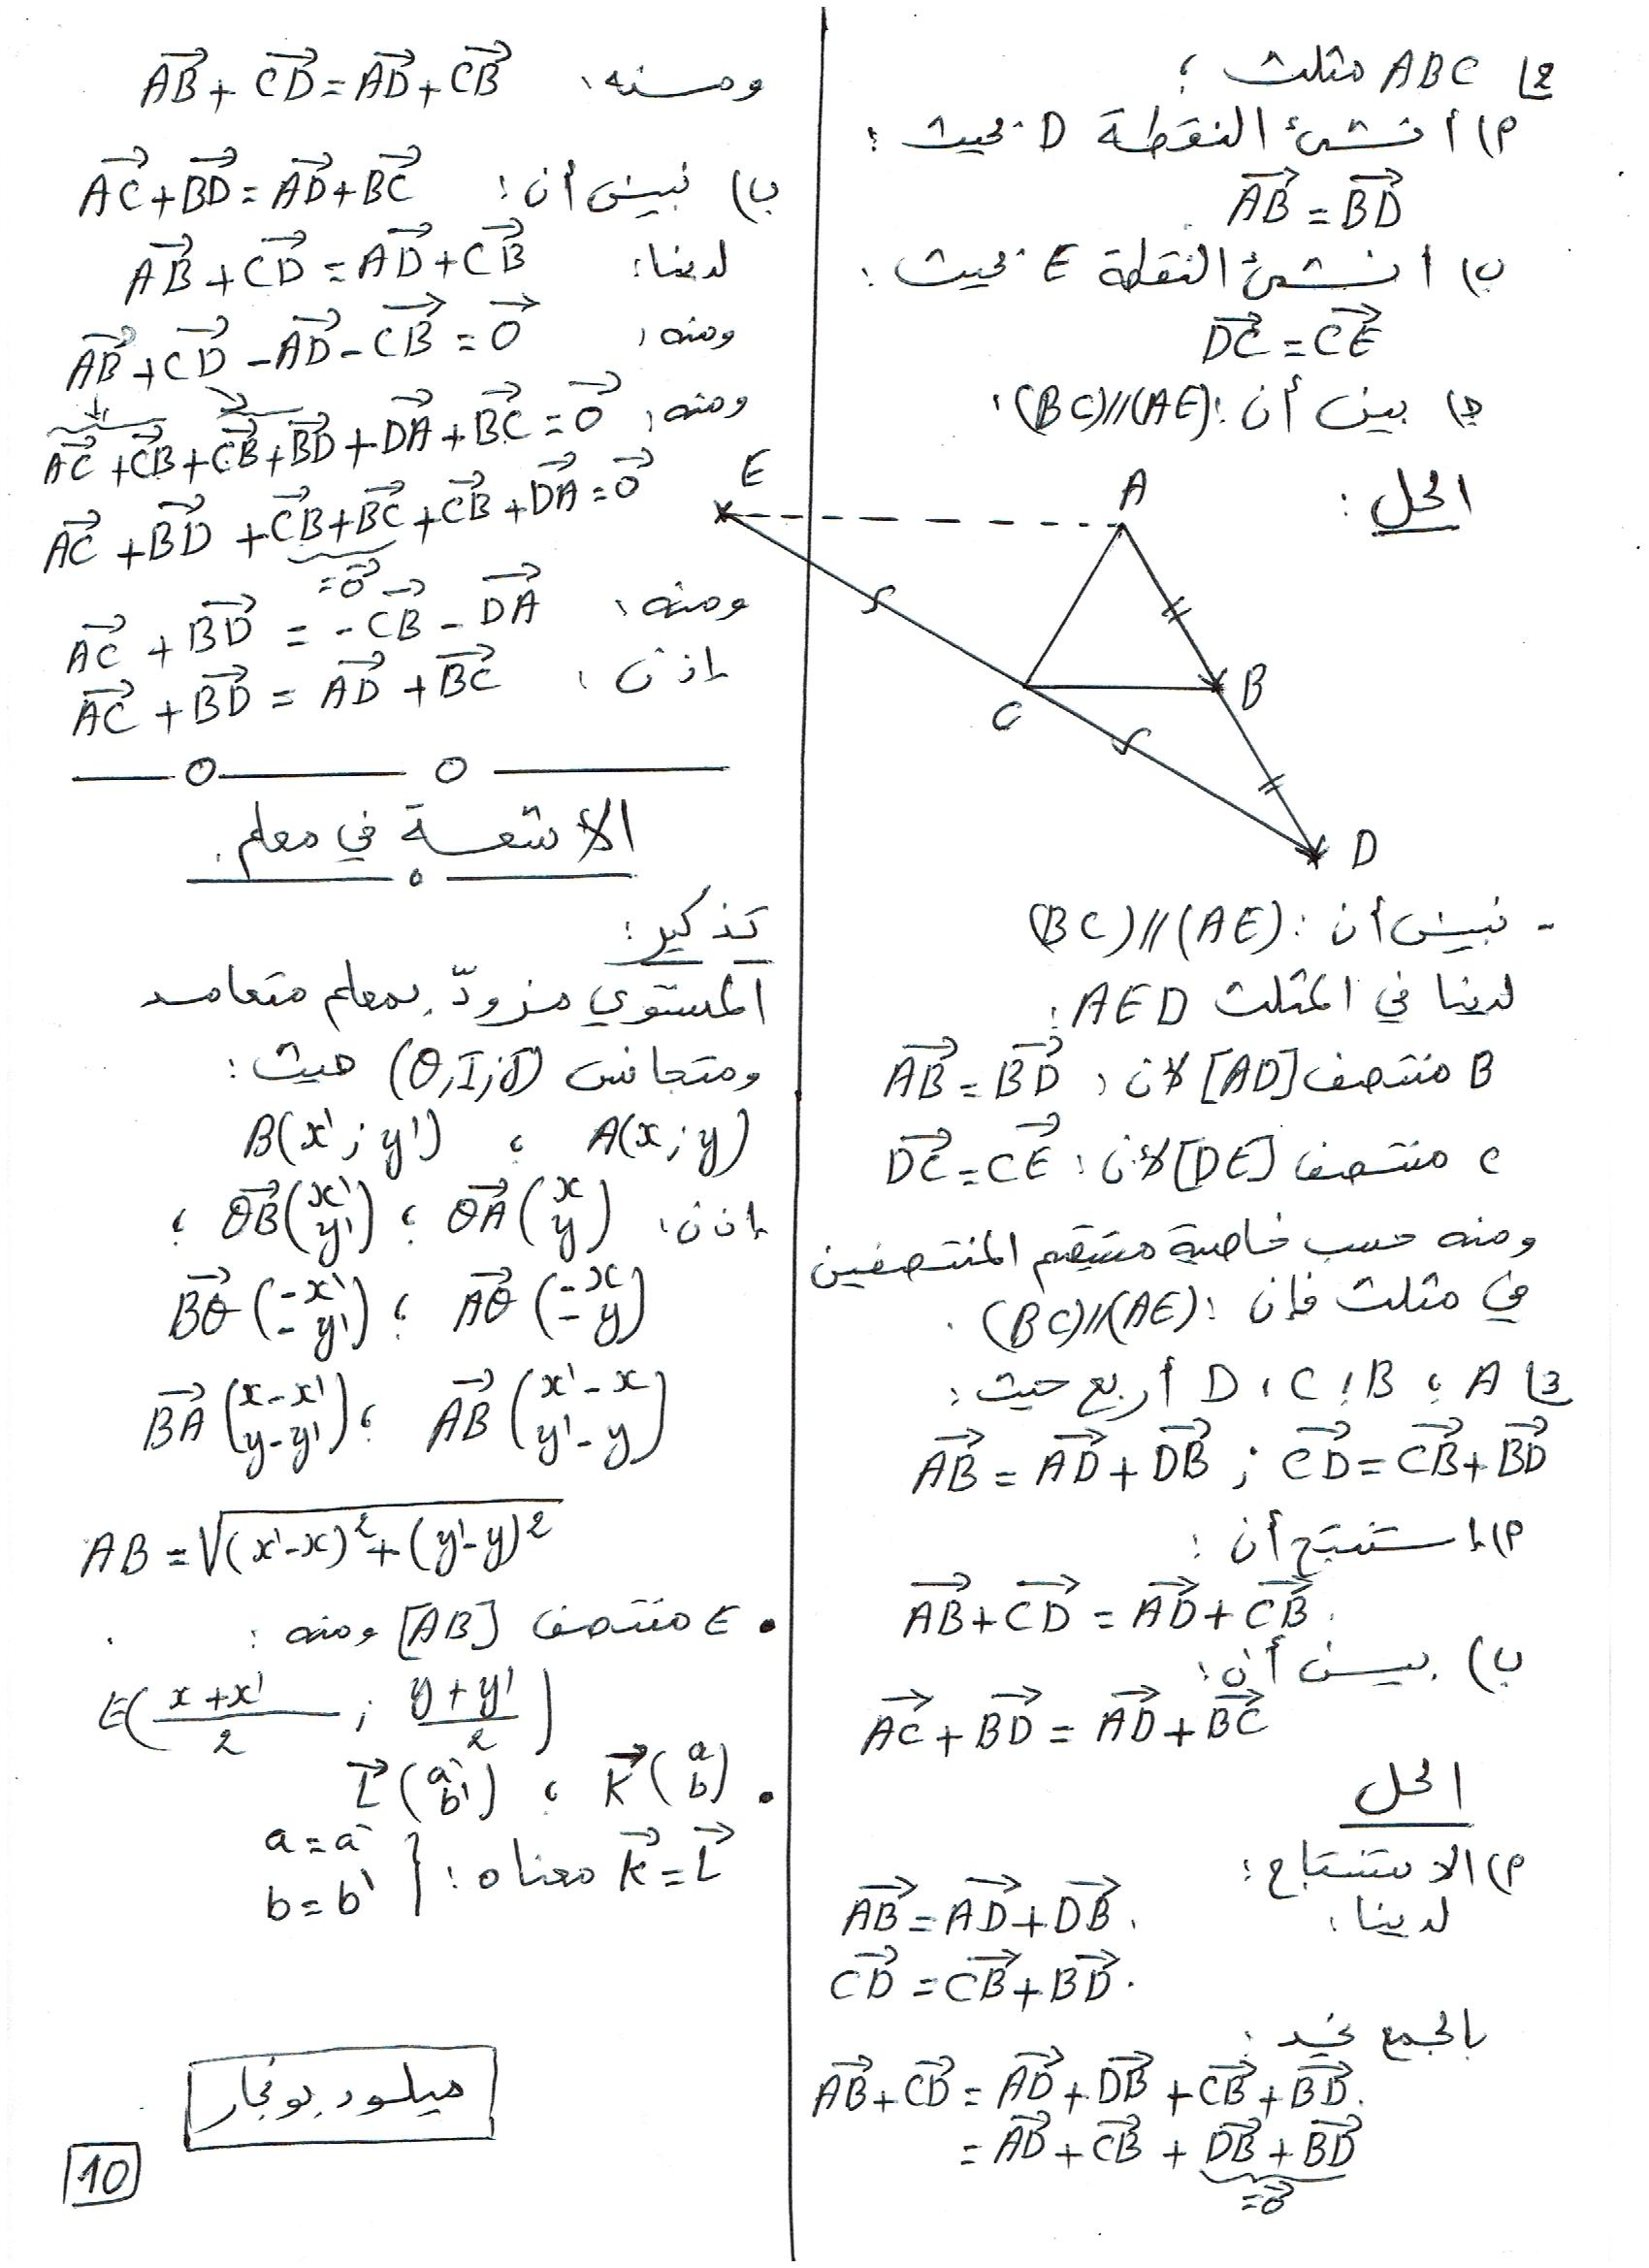 2) ABC مثلث ؛
أ) أنشئ النقطة D بحيث :
AB⃗ = BD⃗
ب) انشئ النقطة E بحيث :
DC⃗ = CE⃗
ج) بين أن : (BC)//(AE)
الحل :
E
A
B
C
D
- نبين أن : (BC)//(AE)
لدينا في المثلث AED :
B منتصف [AD] لأن : AB⃗ = BD⃗
C منتصف [DE] لأن : DC⃗ = CE⃗
ومنه حسب خاصية مستقيم المنتصفين
في مثلث فإن : (BC)//(AE) .
3) A ، B ، C ، D أربع حيث :
AB⃗ = AD⃗ + DB⃗ ; CD⃗ = CB⃗ + BD⃗
أ) استنتج أن :
AB⃗ + CD⃗ = AD⃗ + CB⃗ .
ب) بين أن :
AC⃗ + BD⃗ = AD⃗ + BC⃗
الحل
أ) الاستنتاج :
لدينا :
AB⃗ = AD⃗ + DB⃗ .
CD⃗ = CB⃗ + BD⃗ .
بالجمع نجد :
AB⃗ + CD⃗ = AD⃗ + DB⃗ + CB⃗ + BD⃗ .
= AD⃗ + CB⃗ + DB⃗ + BD⃗
= 0⃗
ومنه : AB⃗ + CD⃗ = AD⃗ + CB⃗
ب) نبين أن : AC⃗ + BD⃗ = AD⃗ + BC⃗
لدينا : AB⃗ + CD⃗ = AD⃗ + CB⃗
ومنه : AB⃗ + CD⃗ - AD⃗ - CB⃗ = 0⃗
ومنه : AC⃗ + CB⃗ + CB⃗ + BD⃗ + DA⃗ + BC⃗ = 0⃗
AC⃗ + BD⃗ + CB⃗ + BC⃗ + CB⃗ + DA⃗ = 0⃗
= 0⃗
ومنه : AC⃗ + BD⃗ = - CB⃗ - DA⃗
إذن : AC⃗ + BD⃗ = AD⃗ + BC⃗
الاشعة في معلم .
تذكير :
المستوي مزودّ بمعلم متعامد
ومتجانس (O,I,J) حيث :
A(x ; y) ، B(x' ; y')
إذن : OA⃗ (x y) ، OB⃗ (x' y') ،
AO⃗ (-x -y) ، BO⃗ (-x' -y')
AB⃗ (x'-x y'-y) ، BA⃗ (x-x' y-y')
AB = √((x'-x)² + (y'-y)²)
• E منتصف [AB] ومنه :
E( (x+x')/2 ; (y+y')/2 )
• K⃗ (a b) ، L⃗ (a' b')
K⃗ = L⃗ معناه : } a = a'
b = b'
ميلود بونجار
10